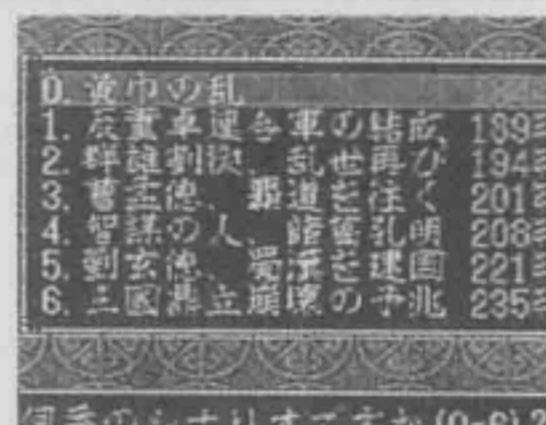 0. 黄巾の乱 184
1. 反董卓連合軍の結成 189年
2. 群雄割拠、乱世再び 194年
3. 曹孟徳、覇道を往く 201年
4. 智謀の人、諸葛孔明 208年
5. 劉玄徳、蜀漢を建国 221年
6. 三國鼎立崩壊の予兆 235年
何番のシナリオですか(0-6)?